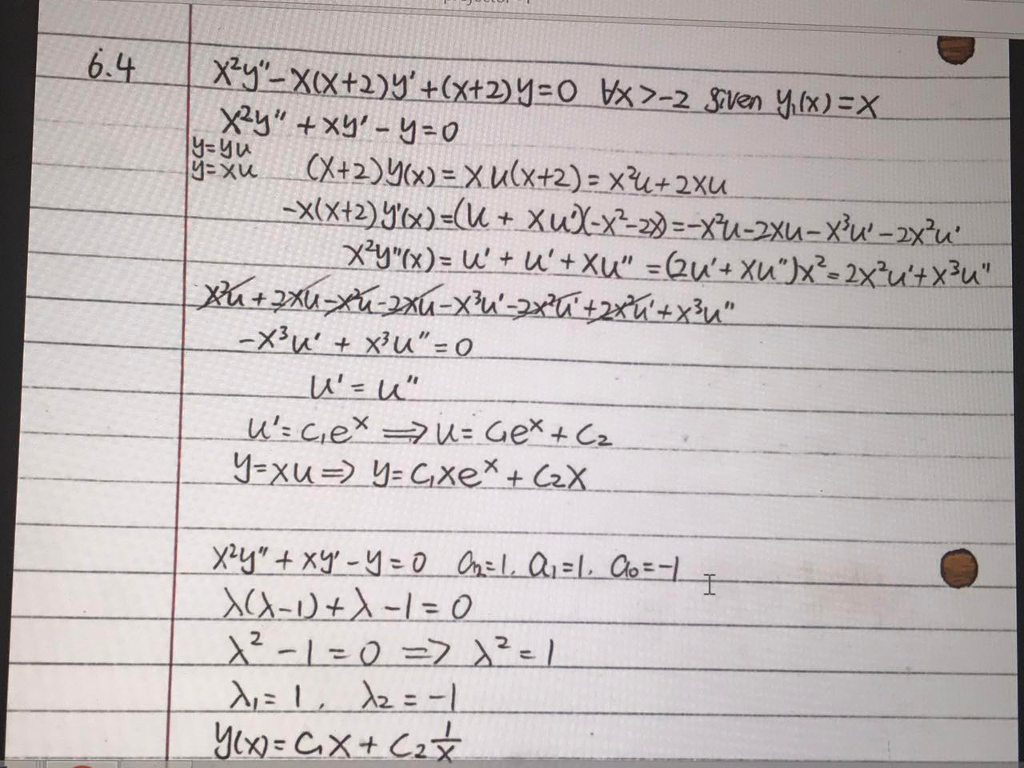 6.4 x²y" - x(x+2)y' + (x+2)y = 0 ∀x > -2 given y₁(x) = x
x²y" + xy' - y = 0
y = yu
y = xu (x+2)y(x) = xu(x+2) = x²u + 2xu
-x(x+2)y'(x) = (u + xu')(-x²-2x) = -x²u - 2xu - x³u' - 2x²u'
x²y"(x) = u' + u' + xu" = (2u' + xu")x² = 2x²u' + x³u"
x²u + 2xu - x²u - 2xu - x³u' - 2x²u' + 2x²u' + x³u"
-x³u' + x³u" = 0
u' = u"
u' = c₁eˣ ⟹ u = c₁eˣ + c₂
y = xu ⟹ y = c₁xeˣ + c₂x
x²y" + xy' - y = 0 a₂=1. a₁=1. a₀=-1
λ(λ-1) + λ - 1 = 0
λ² - 1 = 0 ⟹ λ² = 1
λ₁ = 1 , λ₂ = -1
y(x) = c₁x + c₂ 1/x